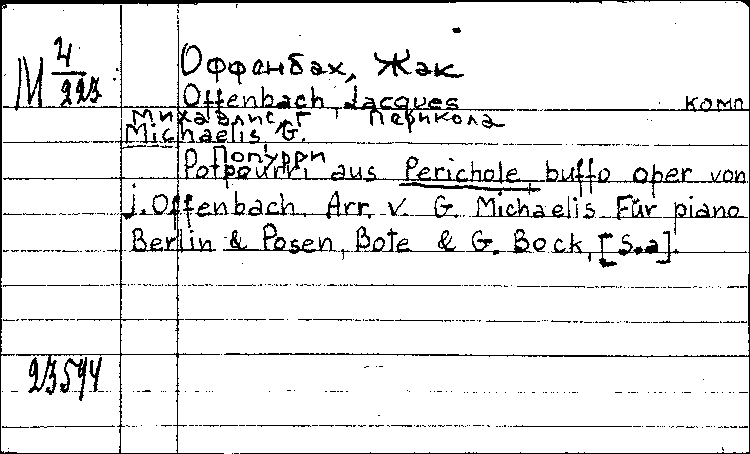 М 4/223
Оффенбах, Жак
Offenbach, Jacques комп
Михаэлис Г. Перикола
Michaelis G.
Попурри
Potpourri aus Perichole, buffo oper von
J. Offenbach. Arr. v. G. Michaelis. Für piano
Berlin & Posen, Bote & G. Bock, [S.a].
23594